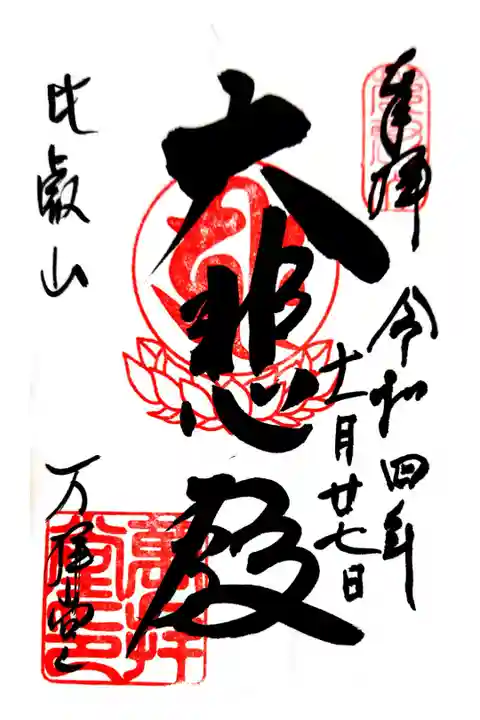 奉拝
令和四年
十一月廿七日
大悲殿
比叡山
万拝堂
萬拝堂印